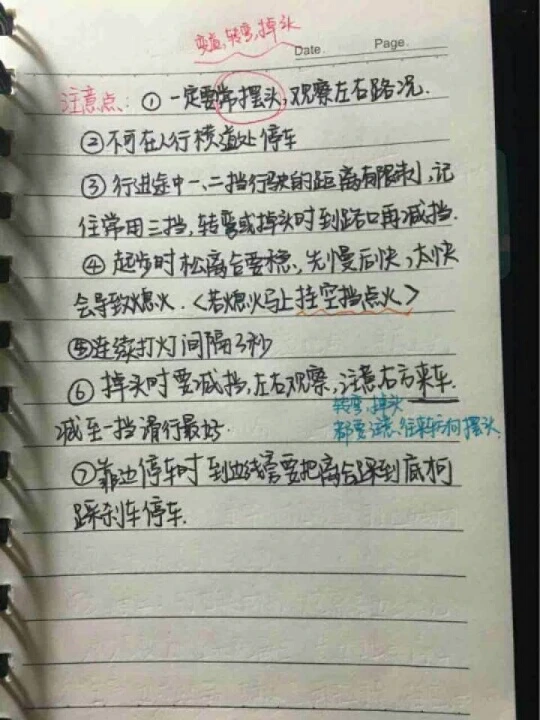 变道,转弯,掉头
Date. Page.
注意点:①一定要常摆头,观察左右路况.
②不可在人行横道处停车
③行进途中一、二挡行驶的距离有限制,记
住常用三挡,转弯或掉头时到路口再减挡.
④起步时松离合要稳,先慢后快,太快
会导致熄火.<若熄火马上挂空挡点火>
⑤连续打灯间隔3秒
⑥掉头时要减挡,左右观察,注意右方来车.
转弯,掉头
减至一挡滑行最好.
都要注意,往来车方向摆头.
⑦靠边停车时到边线需要把离合踩到底
踩刹车停车.